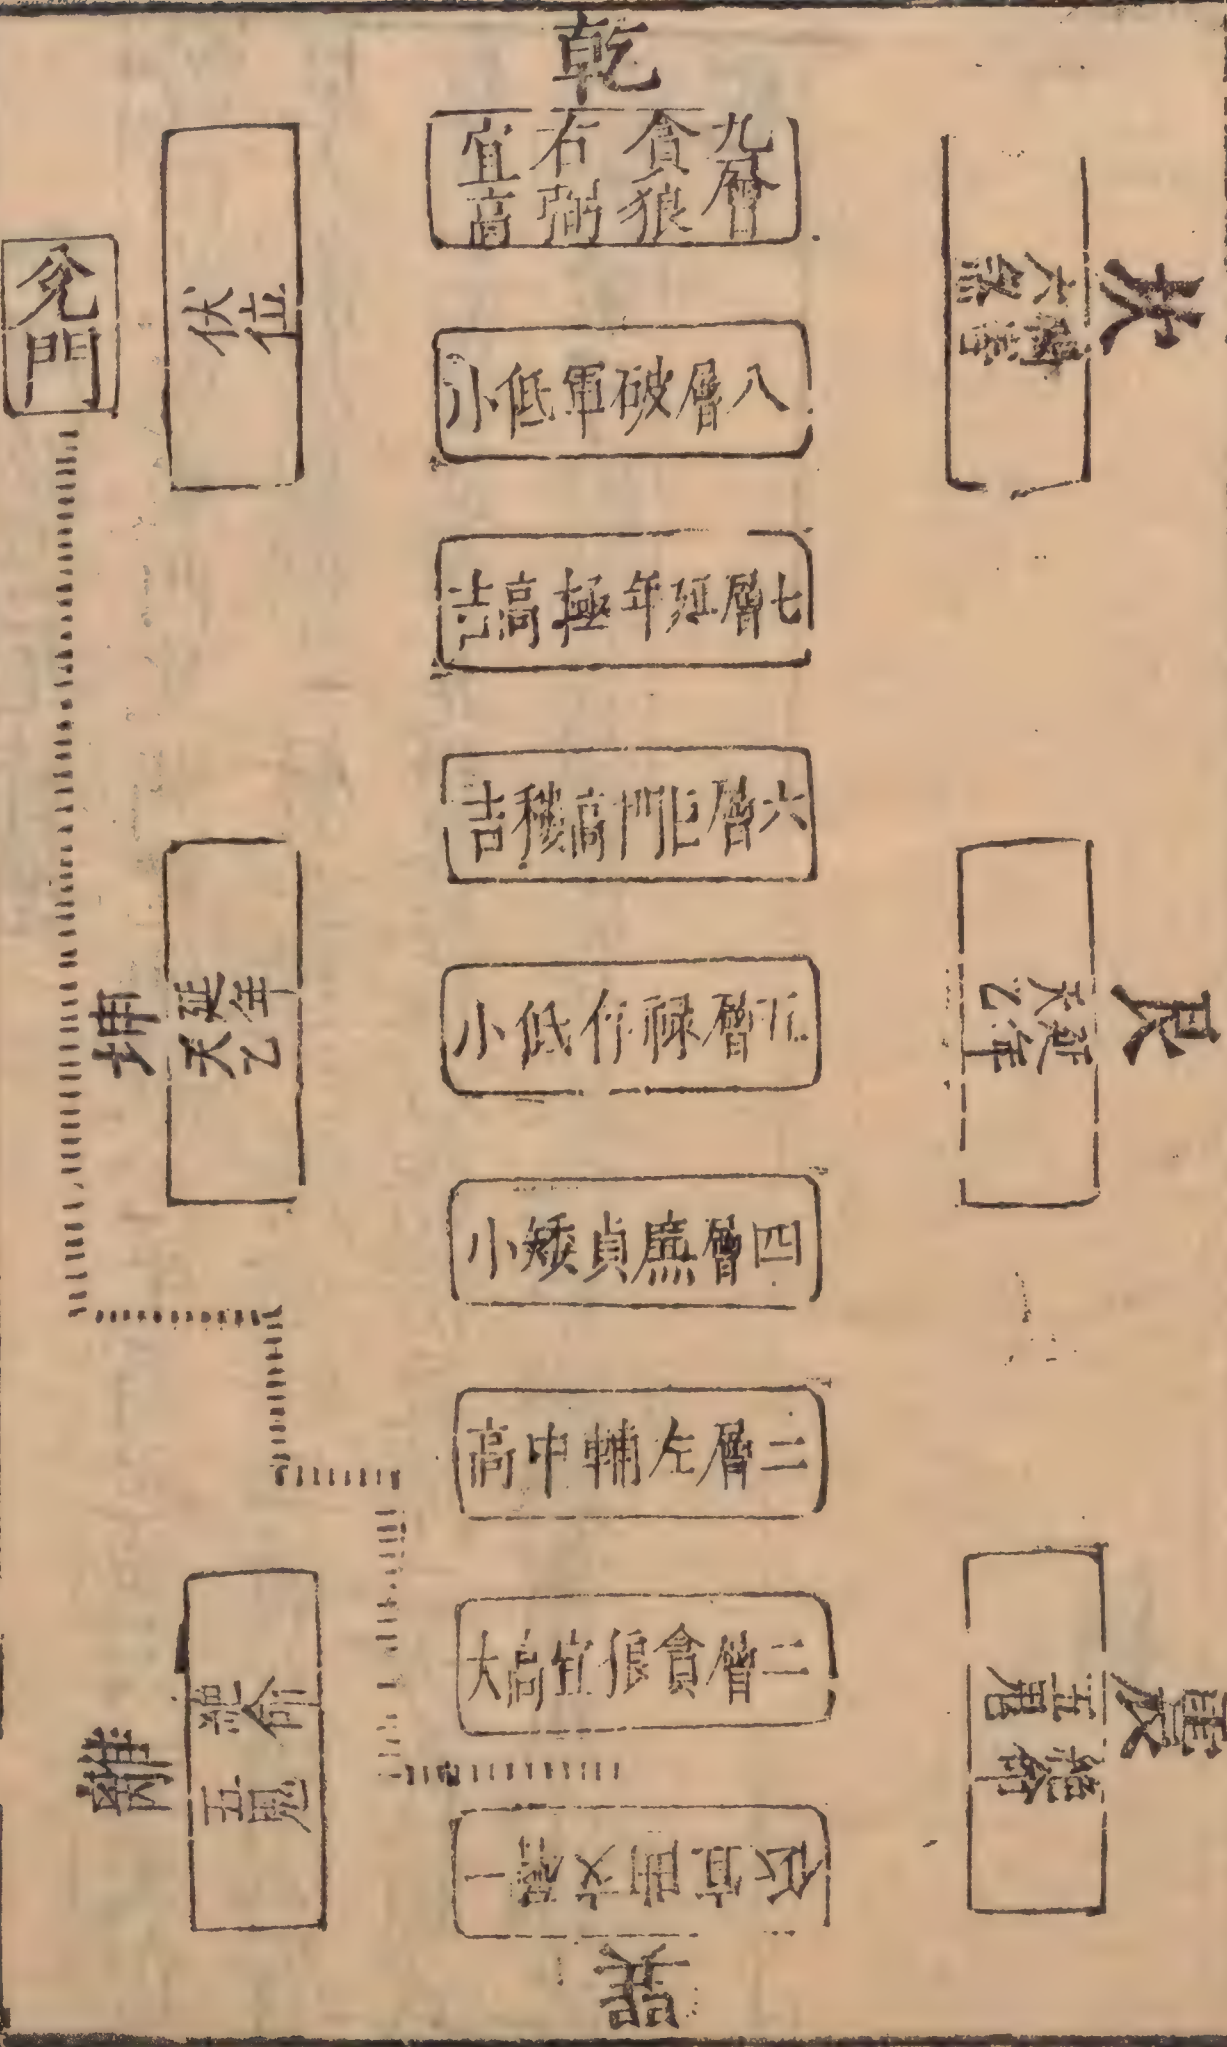 乾
九層
貪狼
右弼
宜高
八層破軍低小
七層延年極高吉
六層巨門高穩吉
五層祿存低小
四層廉貞矮小
三層左輔中高
二層貪狼宜高大
一層文曲宜低
巽
兌門
伏位
坤
延年
天乙
離
絕命
五鬼
坎
六煞
艮
天乙
延年
震
五鬼
絕命